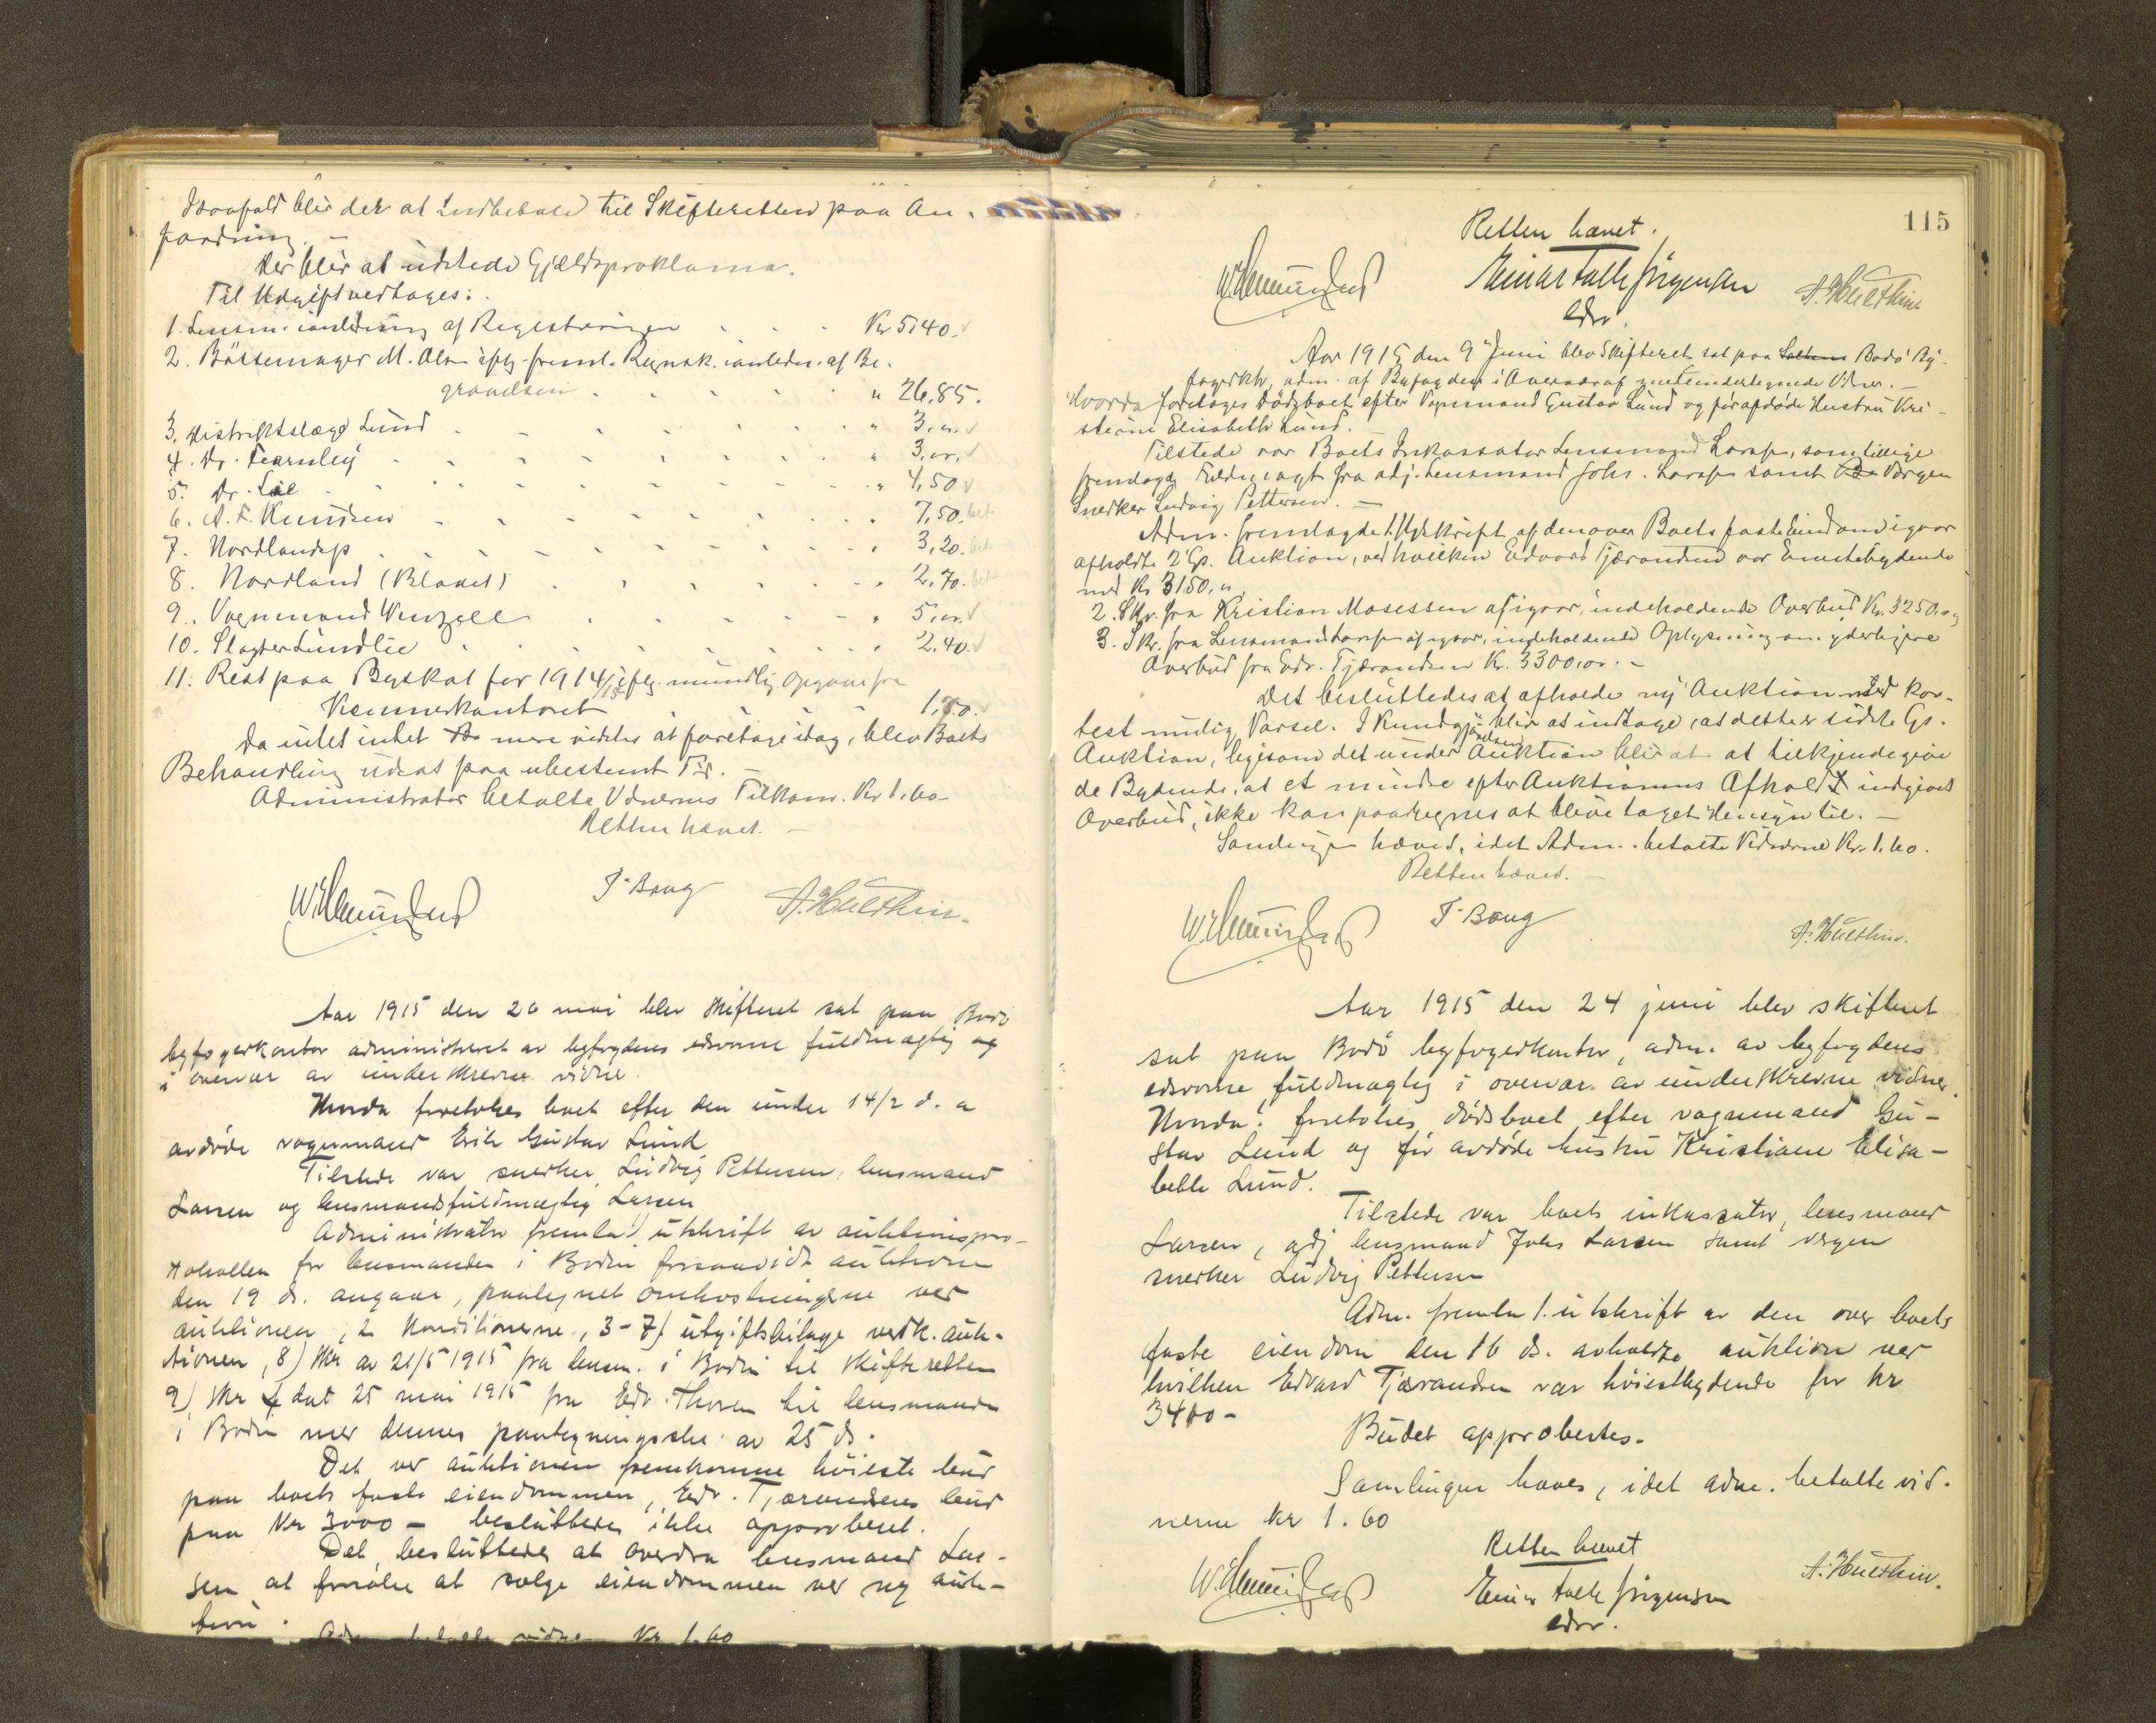 Isaafald blir det at indbetale til Skifteretten paa An-
fordring. —
Der blir at udstede Gjældsproklama.
Til Udgift vedtages:
1. Lensm. i anledning af Registreringen Kr 5,40.
2. Bøssemager M. Olsen iflg. freml. Regnsk. i anledn. af Be-
gravelsen " 26,85.
3. Distriktslæge Lund " 3,00
4. Dr. Fearnley " 3,00
5. Dr. Lie " 4,50
6. A. F. Knudsen " 7,50. bet
7. Nordlandsp " 3,20. bet
8. Nordland (Bladet) " 2,70. bet
9. Vognmand Wenzell " 5,00.
10. Slagter Lundlie " 2,40.
11. Rest paa Byskat for 1914/15 iflg. mundtlig Opgave fra
Kemnerkontoret 1,80.
Da intet mere vides at foretage idag, blev Boets
Behandling udsat paa ubestemt Tid. —
Administrator betalte Vidnernes Tilkom. Kr 1.60
Retten hævet. —
T. Boug A. Hulthin.
Aar 1915 den 26 mai blev skifteret sat paa Bodø
byfogedkontor administreret av byfogdens edsvorne fuldmægtig og
i overvær av underskrevne vidne.
Hvorda foretokes boet efter den under 14/2 d. a
avdøde vognmand Erik Gustav Lund
Tilstede var snedker Ludvig Pettersen, lensmand
Larsen og lensmandsfuldmægtig Larsen
Administrator fremla 1) utskrift av auktionspro-
tokollen for lensmanden i Bodin forsaavidt auktionen
den 19 ds. angaar, paategnet omkostningerne ved
auktionen, 2 Konditionerne, 3-7) utgiftsbilage vedk. auk-
tionen, 8) skr av 21/5 1915 fra lensm. i Bodin til skifteretten
9) skr dat 25 mai 1915 fra Edv. Thoren til lensmanden
i Bodin med dennes paategningsskr. av 25 ds.
Det ved auktionen fremkomne høieste bud
paa boets faste eiendommen, Edv. Tjærandsens bud
paa Kr 3000 — besluttedes ikke approberet.
Det besluttedes at overdra lensmand Lar-
sen at forsøke at sælge eiendommen ved ny auk-
tion.
Adm betalte vidne Kr 1.60
115
Retten hævet.
Einar Falk Jørgensen A. Hulthin
edsv.
Aar 1915 den 9 Juni blev Skifteret sat paa Bodø By-
fogedktr, adm. af Byfogden i Overvær af undertegnede Vidner. —
Hvorda foretages Dødsboet efter Vognmand Gustav Lund og før afdøde Hustru Kri-
stiane Elisabeth Lund.
Tilstede var Boets Inkassator Lensmand Larsen, som tillige
fremlagde Fuldmagt fra adj. Lensmand Johs. Larsen samt Værgen
Snedker Ludvig Pettersen. —
Adm. fremlagde 1. Udskrift af den over Boets faste Eiendom igaar
afholdte 2 Gs. Auktion, ved hvilken Edvard Tjærandsen var høiestbydende
med Kr 3150,00
2. Skr. fra Kristian Mosessen af igaar, indeholdende Overbud Kr. 3250,00
3. Skr. fra Lensmand Larsen af igaar, indeholdende Oplysning om yderligere
Overbud fra Edv. Tjærandsen Kr. 3300,00. —
Det besluttedes at afholde ny Auktion med kor-
test mulig Varsel. I Kundgjørelsen blir at indtage, at dette er sidste Gs.
Auktion, ligesom det under Auktion blir at tilkjendegive
de Bydende, at et mindre efter Auktionens Afhold indgivet
Overbud, ikke kan paaregnes at blive taget Hensyn til. —
Samlingen hæved, idet Adm. betalte Vidnerne Kr. 1.60.
Retten hævet. —
T. Boug
A. Hulthin.
Aar 1915 den 24 juni blev skifteret
sat paa Bodø byfogedkontor, adm. av byfogdens
edsvorne fuldmægtig i overvær av underskrevne vidner.
Hvorda: foretokes dødsboet efter vognmand Gu-
stav Lund og før avdøde hustru Kristiane Elisa-
beth Lund.
Tilstede var boets inkassator, lensmand
Larsen, adj. lensmand Johs Larsen samt værgen
snedker Ludvig Pettersen
Adm. fremla 1. utskrift av den over boets
faste eiendom den 16 ds. avholdte auktion ved
hvilken Edvard Tjærandsen var høiestbydende for kr
3400 —
Budet approbertes.
Samlingen hæves, idet adm. betalte vid-
nerne kr 1.60
Retten hævet
A. Hulthin.
Einar Falk Jørgensen
edsv.